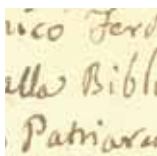 nico Ferd
alla Bibli
Patriarca